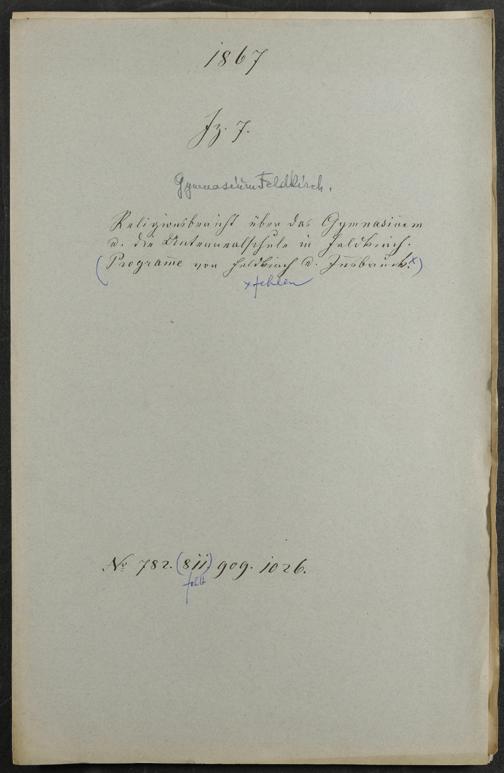 1867
Fz. 7.
Gymnasium Feldkirch.
Religionsbericht über das Gymnasium
u. die Unterrealschule in Feldkirch.
(Programe von Feldkirch u. Insbruck.x)
x fehlen
No 782. (811) 909. 1026.
fehlt